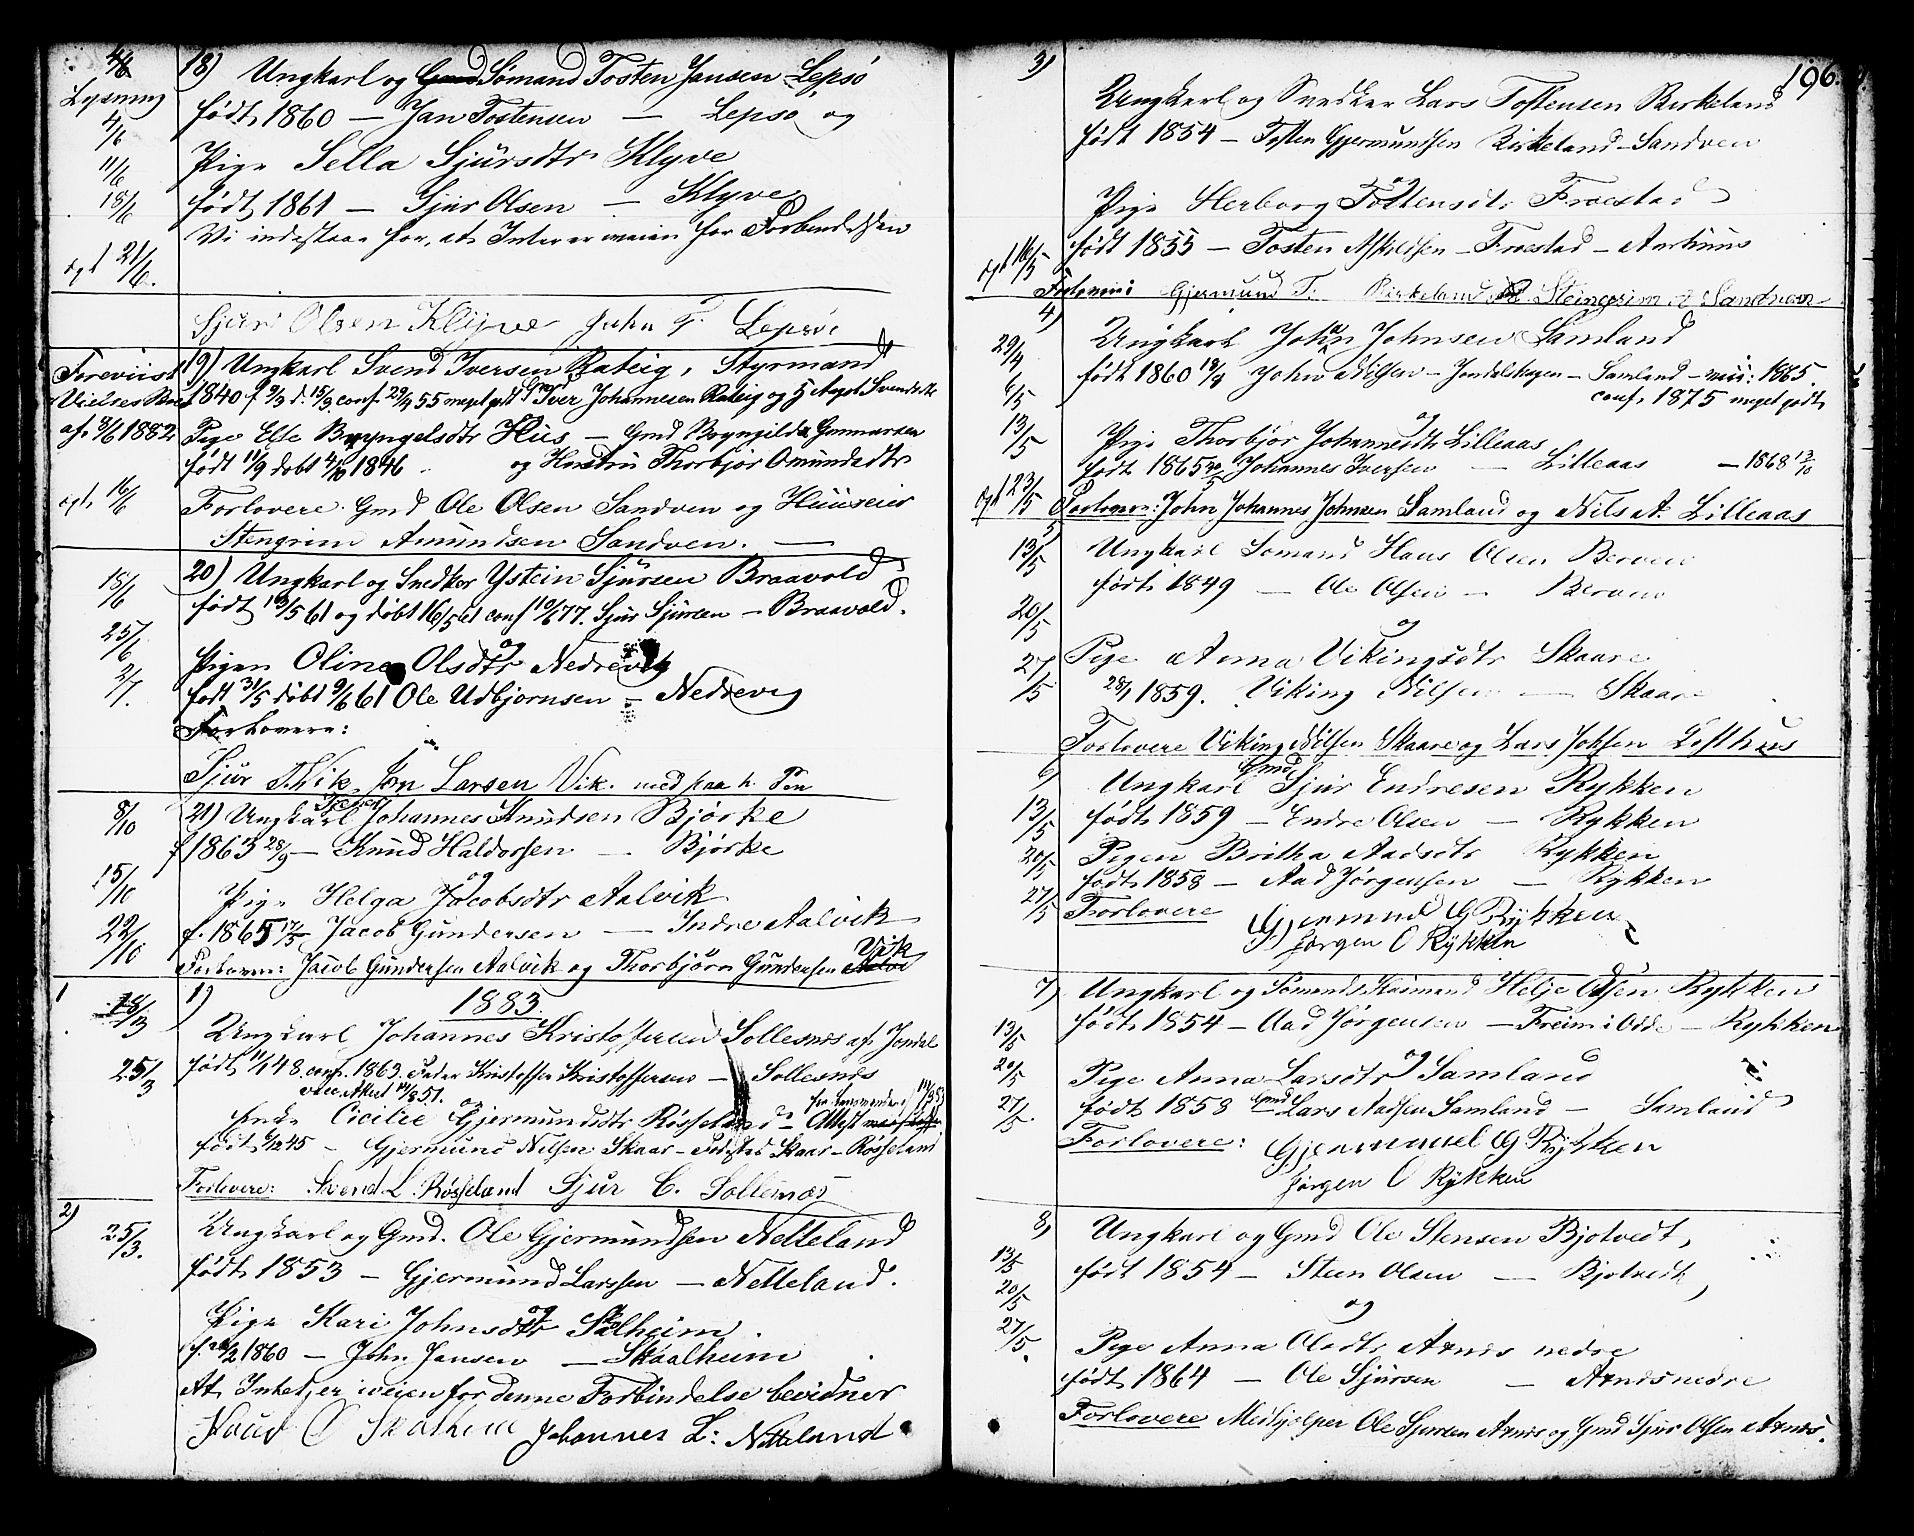 4/6
Lysning
4/6
11/6
18/6
vgt 21/6.
18) Ungkarl og Gmd Sømand Tosten Jansen Lepsø
født 1860 — Jan Tostensen — Lepsø og
Pige Sella Sjursdtr Klyve
født 1861 — Sjur Olsen — Klyve
Vi indestaar for, at Intet er iveien for Forbindelsen
Sjur Olsen Klyve John T. Lepsøe
Foreviist
Vielses
af 8/6 1882
vgt, 16/6
19) Ungkarl Svend Iversen Rateig, Styrmand
1840 f 9/9 d. 15/9 conf. 29/4 55 meget godt Gmd Iver Johannesen Rateig og H Aagot Svendsdtr
Pige Else Bryngelsdtr Huus — Gmd Bryngild Gunnarsen
født 11/9 døbt 4/10 1846 og Hustru Thorbjør Omundsdtr
Forlovere Gmd Ole Olsen Sandven og Huuseier
Stengrim Amundsen Sandven. —
18/6
25/6
2/7.
20) Ungkarl og Snedker Ystein Sjursen Braavold
født 13/5 61 og døbt 16/5 61 conf 10/6 77. Sjur Sjursen — Braavold.
og
Pigen Oline Olsdtr Nedrevig
født 31/5 døbt 9/6 61 Ole Udbjørnsen — Nedrevig
Forlovere:
Sjur T. Vik Jon Larsen Vik. med paa h. Pen
8/10
15/10
22/10
21) Ungkarl Tjener Johannes Knudsen Bjørke
f 1863 28/9 — Knud Haldorsen — Bjørke
og
Pige Helga Jacobsdtr Aalvik
f. 1865 17/5 Jacob Gundersen — Indre Aalvik
Forlovere: Jacob Gundersen Aalvik og Thorbjørn Gundersen Vik
1
18/3
25/3
1) 1883
Ungkarl Johannes Kristoffersen Sollesnes af Jondal
født 11/1 48. conf. 1863. Fader Kristoffer Kristoffersen — Sollesnes
vacc. Attest 14/8 51.
og
Enke Cicilie Gjermundsdtr Røsseland — Attest
født 6/12 45 — Gjermund Nilsen Skaar — Fødested Skaar — Røsseland
Forlovere: Svend L. Røsseland Sjur C. Sollesnæs
2)
25/3.
Ungkarl og Gmd. Ole Gjermundsen Netteland
født 1853 — Gjermund Larssen — Netteland.
og
Pige Kari Johnsdtr Skalheim.
1860 — John Jansen — Skaalheim
At Intet er iveien for denne Forbindelse bevidner
Knud O Skalheim Johannes L: Netteland
196.
3)
Ungkarl og Snedker Lars Tostensen Birkeland
født 1854 — Tosten Gjermundsen Birkeland — Sandven
og
Pige Herborg Tostensdtr Froestad
vgt 16/5
født 1855 — Tosten Asleldsen — Froestad — Aarhuus
Forlovere: Gjermund T. Birkeland og Steingrim A Sandven
4)
29/4
6/5
13/5
vgt 23/5
Ungkarl John Johnsen Samland
født 1860 18/4 John Nilsen — Jondalskogen — Samland — 1865.
conf. 1875 meget godt
og
Pige Thorbjør Johannesdtr Lilleaas
født 1865 Johannes Iversen — Lilleaas — 1868 13/10
Forlovere: John Johannes Johnsen Samland og Nils A. Lilleaas
5)
13/5
20/5
27/5
Ungkarl Sømand Hans Olsen Berven
født 1849 — Ole Olsen — Berven
og
Pige Anna Vikingsdtr Skaare
28/1 1859. Viking Nilsen — Skaare
Forlovere Viking Nilsen Skaare og Lars Johsen Lofthus
6)
13/5
20/5
27/5
Ungkarl Gmd Sjur Endresen Rykken
født 1859 — Endre Olsen — Rykken
Pigen Britha Aadsdtr Rykken
født 1858 — Aad Jørgensen — Rykken
Forlovere Gjermund G Rykken
Jørgen O Rykken
7)
13/5
20/5
27/5
Ungkarl og Helje Odsen Rykken
født 1854 — Aad Jørgensen — Freim i Odde — Rykken
og
Pige Anna Larsdtr Samland
født 1858 Gmd Lars Aadsen Samland — Samland
Forlovere: Gjermund G Rykken
Jørgen O Rykken
8)
13/5
20/5
27/5.
Ungkarl og Gmd Ole Stensen Bjotvedt,
født 1854 — Steen Olsen — Bjotvedt,
og
Pige Anna Olsdtr Axnes nedre
født 1864 — Ole Sjursen — Axnes nedre
Forlovere Medhjelper Ole Sjursen Axnes og Gmd Sjur Olsen Axnes.